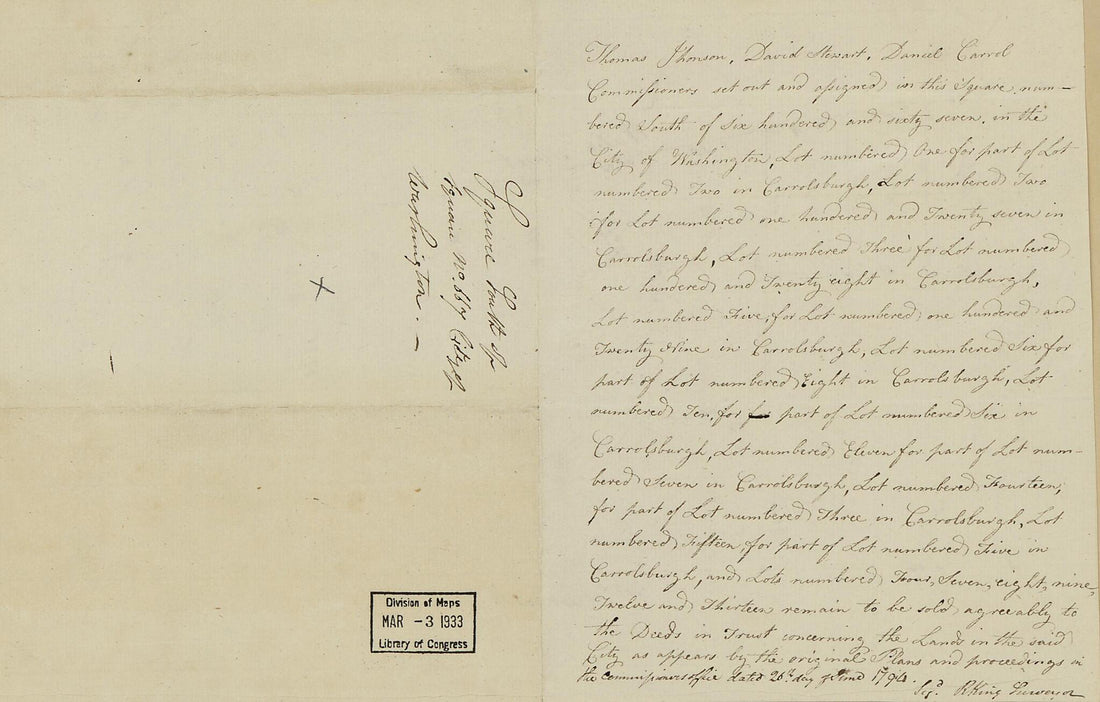 Square South of
squair No. 667 City of
Washington. —
Division of Maps
MAR -3 1933
Library of Congress
Thomas Jhonson, David Stewart, Daniel Carrol
Commissioners set out and assigned in this Square num-
bered South of Six hundered and sixty seven. in the
City of Washington, Lot numbered One for part of Lot
numbered Two in Carrolsburgh, Lot numbered Two
for Lot numbered one hundered and Twenty seven in
Carrolsburgh, Lot numbered Three for Lot numbered
one hundered and Twenty eight in Carrolsburgh,
Lot numbered Five, for Lot numbered one hundered and
Twenty Nine in Carrolsburgh, Lot numbered Six for
part of Lot numbered Eight in Carrolsburgh, Lot
numbered Ten, for part of Lot numbered Six in
Carrolsburgh, Lot numbered Eleven for part of Lot num-
bered Seven in Carrolsburgh, Lot numbered Fourteen,
for part of Lot numbered Three in Carrolsburgh, Lot
numbered Fifteen, for part of Lot numbered Five in
Carrolsburgh, and Lots numbered Four, Seven, eight, nine,
Twelve and Thirteen remain to be sold agreeably to
the Deeds in Trust concerning the Lands in the said
City as appears by the original Plans and proceedings in
the commissioners office dated 26th day of June 1794.
Sigd. RKing Surveyor